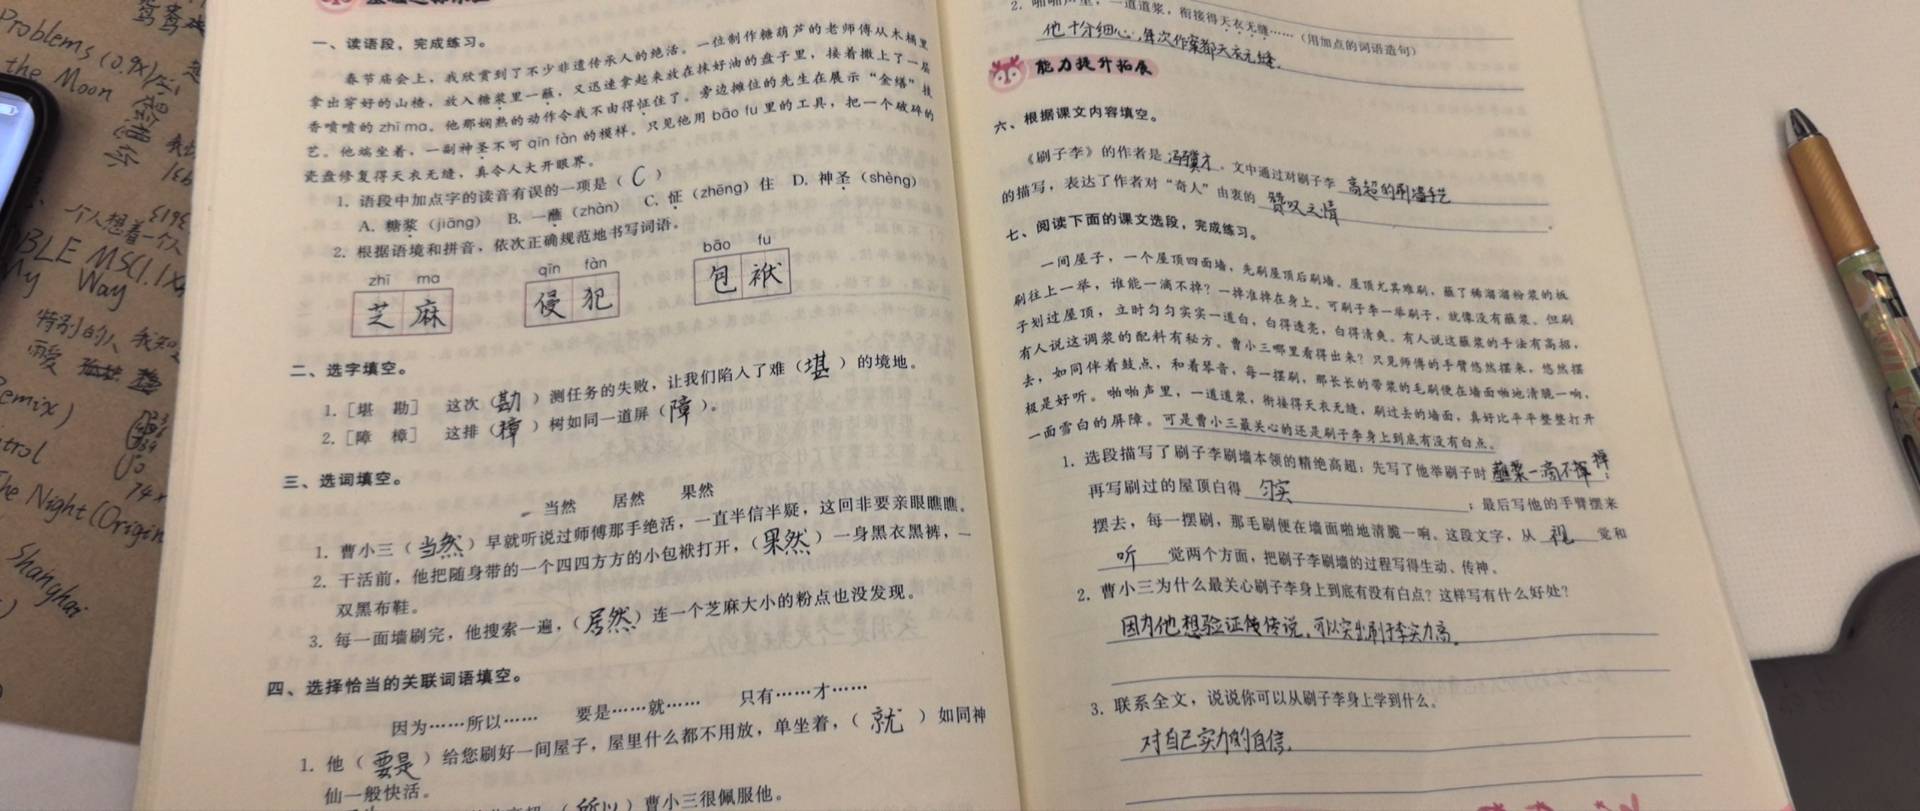 Problems (0.9x)
the Moon
想
想
你
个人想着一个人
My Way
特别的人 我知
emix)
trol
The Night (Origin
Shanghai
一、读语段，完成练习。
春节庙会上，我欣赏到了不少非遗传承人的绝活。一位制作糖葫芦的老师傅从木桶里
拿出穿好的山楂，放入糖浆里一蘸，又迅速拿起来放在抹好油的盘子里，接着撒上了一层
香喷喷的 zhī ma。他那娴熟的动作令我不由得怔住了。旁边摊位的先生在展示“金缮”技
艺。他端坐着，一副神圣不可 qīn fàn 的模样。只见他用 bāo fu 里的工具，把一个破碎的
瓷盘修复得天衣无缝，真令人大开眼界。
1. 语段中加点字的读音有误的一项是（ C ）
A. 糖浆（jiāng） B. 一蘸（zhàn） C. 怔（zhēng）住 D. 神圣（shèng）
2. 根据语境和拼音，依次正确规范地书写词语。
zhī ma qīn fàn bāo fu
芝麻 侵犯 包袱
二、选字填空。
1. ［堪 勘］ 这次（勘）测任务的失败，让我们陷入了难（堪）的境地。
2. ［障 樟］ 这排（樟）树如同一道屏（障）。
三、选词填空。
当然 居然 果然
1. 曹小三（当然）早就听说过师傅那手绝活，一直半信半疑，这回非要亲眼瞧瞧。
2. 干活前，他把随身带的一个四四方方的小包袱打开，（果然）一身黑衣黑裤，一
双黑布鞋。
3. 每一面墙刷完，他搜索一遍，（居然）连一个芝麻大小的粉点也没发现。
四、选择恰当的关联词语填空。
因为……所以…… 要是……就…… 只有……才……
1. 他（要是）给您刷好一间屋子，屋里什么都不用放，单坐着，（就）如同神
仙一般快活。
（所以）曹小三很佩服他。
2. 啪啪声里，一道道浆，衔接得天衣无缝……（用加点的词语造句）
他十分细心，每次作案都天衣无缝.
能力提升拓展
六、根据课文内容填空。
《刷子李》的作者是 冯骥才 。文中通过对刷子李 高超的刷墙手艺
的描写，表达了作者对“奇人”由衷的 赞叹之情 。
七、阅读下面的课文选段，完成练习。
一间屋子，一个屋顶四面墙，先刷屋顶后刷墙。屋顶尤其难刷，蘸了稀溜溜粉浆的板
刷往上一举，谁能一滴不掉？一掉准掉在身上。可刷子李一举刷子，就像没有蘸浆。但刷
子划过屋顶，立时匀匀实实一道白，白得透亮，白得清爽。有人说这蘸浆的手法有高招，
有人说这调浆的配料有秘方。曹小三哪里看得出来？只见师傅的手臂悠然摆来，悠然摆
去，如同伴着鼓点，和着琴音，每一摆刷，那长长的带浆的毛刷便在墙面啪地清脆一响，
极是好听。啪啪声里，一道道浆，衔接得天衣无缝，刷过去的墙面，真好比平平整整打开
一面雪白的屏障。可是曹小三最关心的还是刷子李身上到底有没有白点。
1. 选段描写了刷子李刷墙本领的精绝高超：先写了他举刷子时 蘸浆一滴不掉 ；
再写刷过的屋顶白得 匀实 ；最后写他的手臂摆来
摆去，每一摆刷，那毛刷便在墙面啪地清脆一响。这段文字，从 视 觉和
听 觉两个方面，把刷子李刷墙的过程写得生动、传神。
2. 曹小三为什么最关心刷子李身上到底有没有白点？这样写有什么好处？
因为他想验证传说，可以突出刷子李实力高.
3. 联系全文，说说你可以从刷子李身上学到什么。
对自己实力的自信.